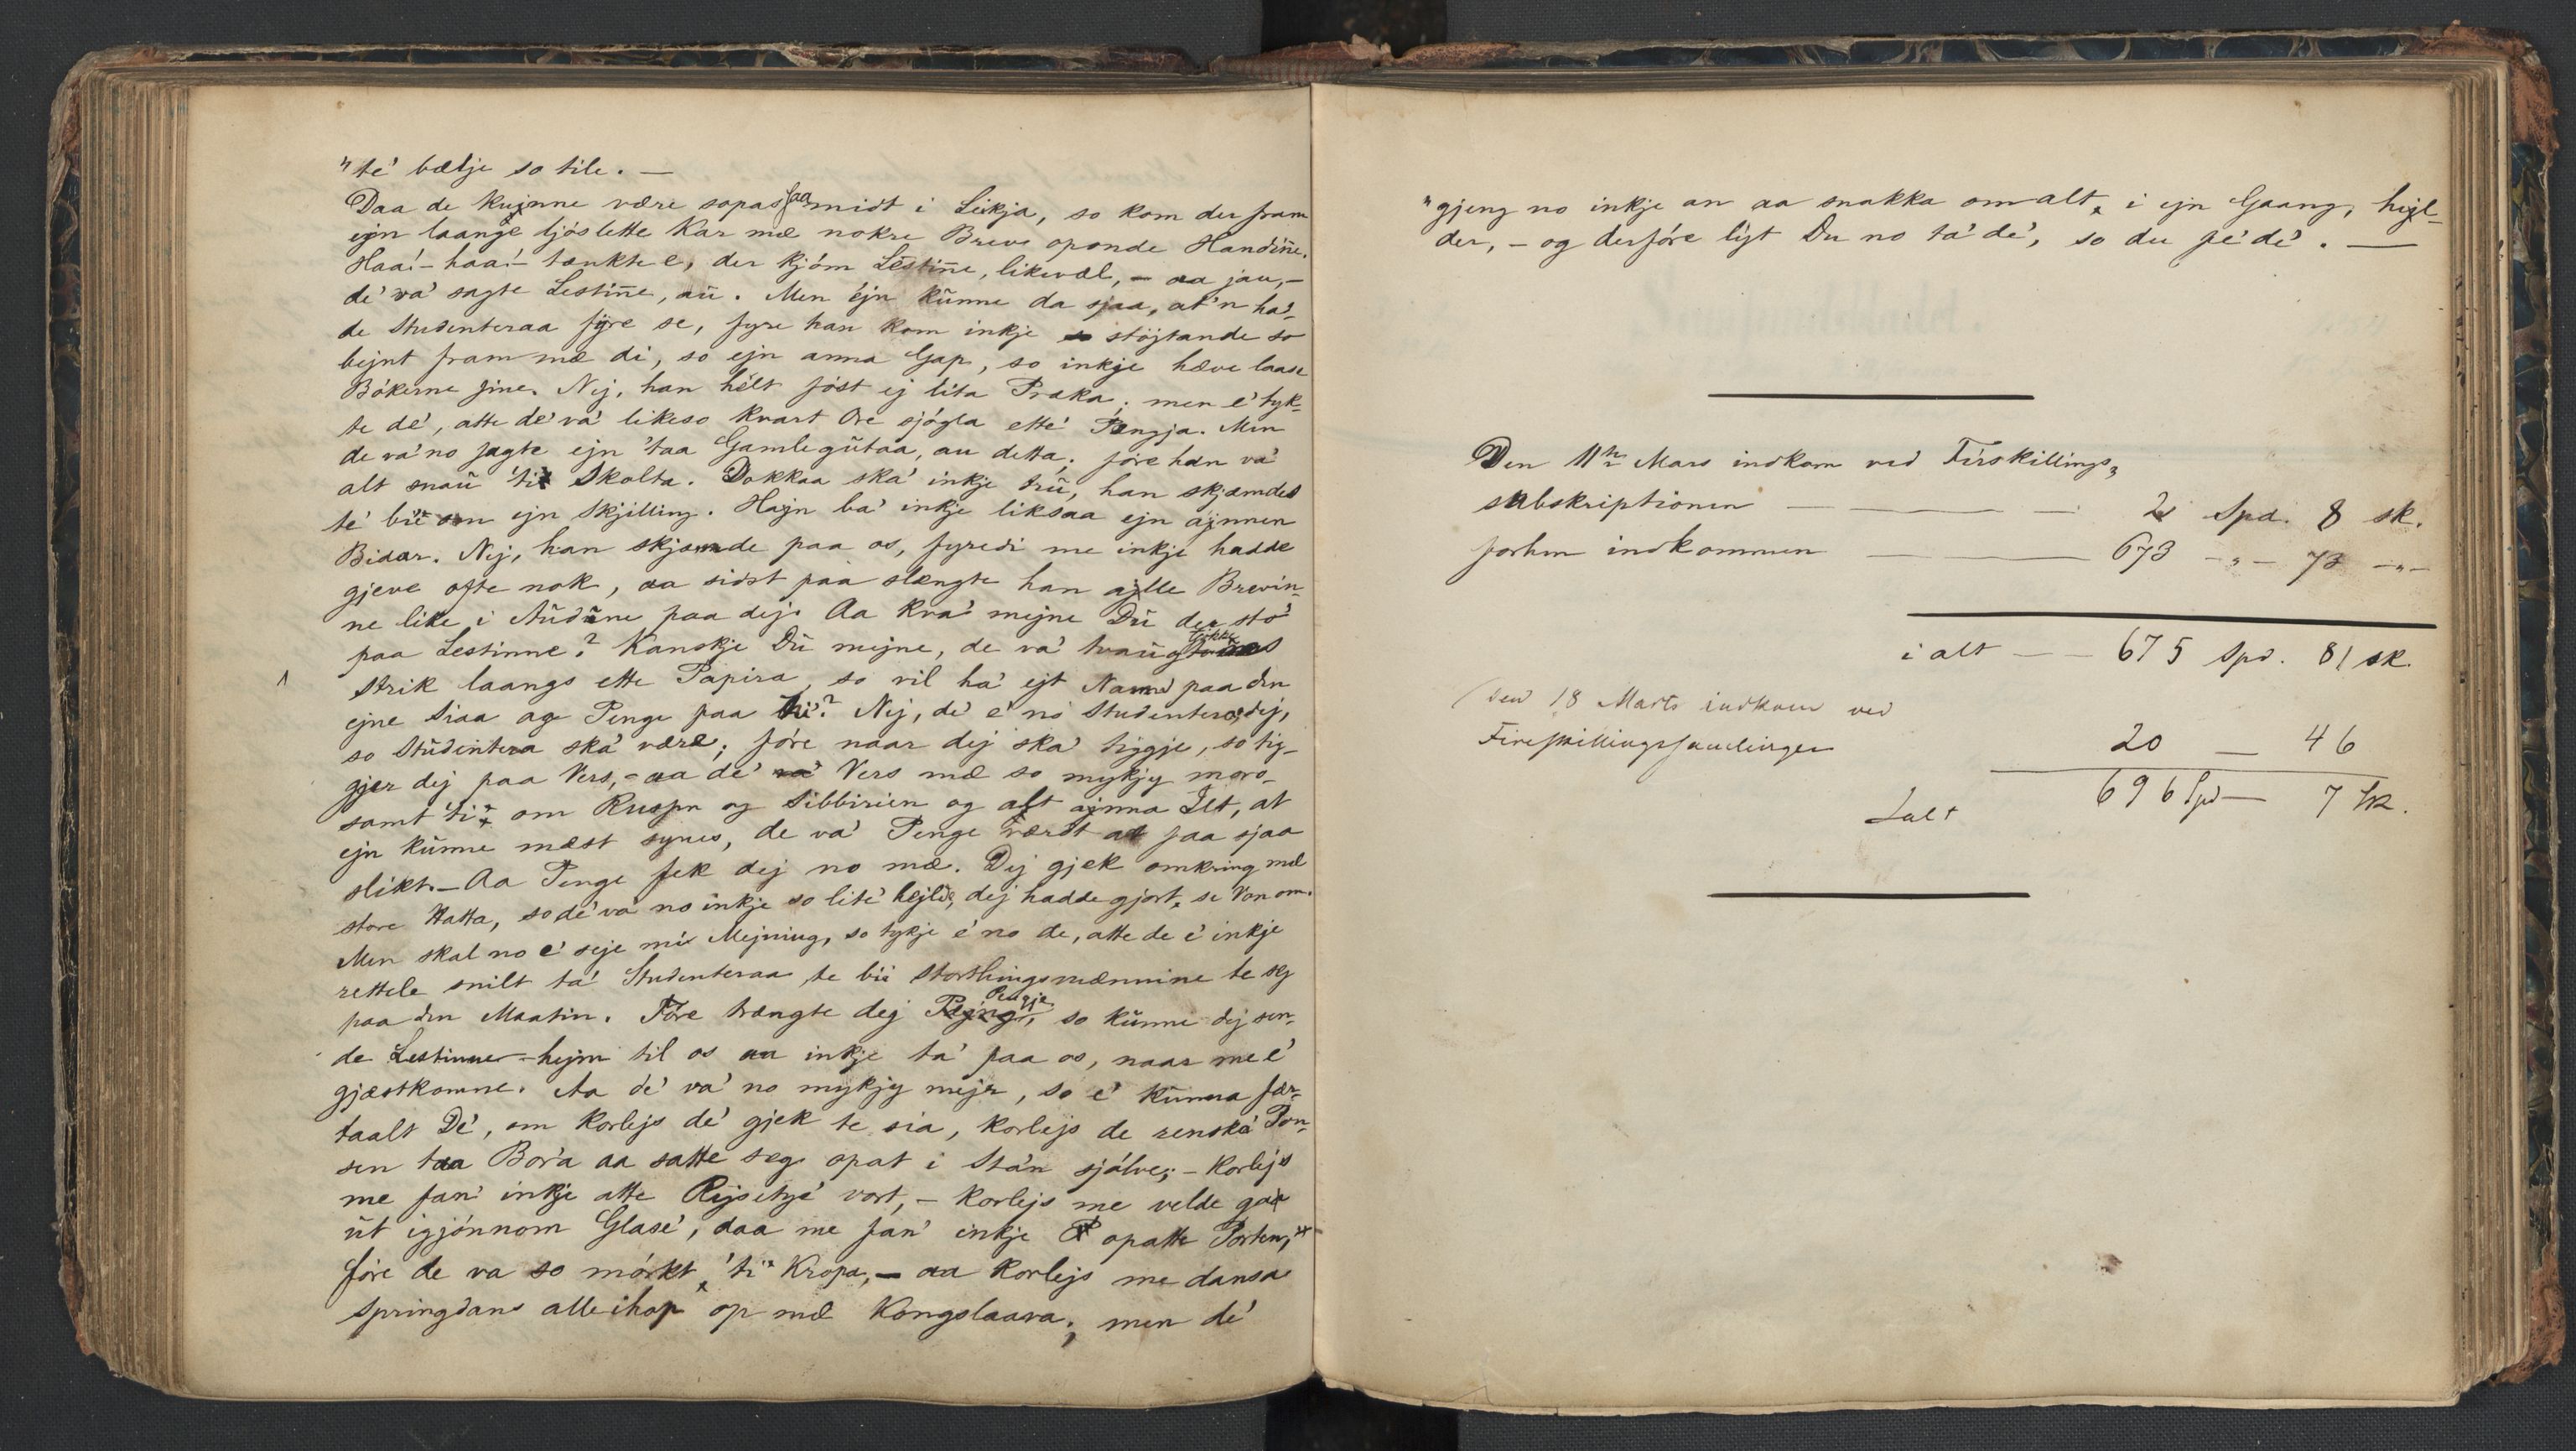 "te' bætje so tile. —
Daa de kujnne være sopas faa midt i Leikja, so kom der fram
ejn laange ljóslette Kar mæ nokre Breve oponde Handine.
Haa! - haa! - tænkte e, der kjóm Lestine, likevæl, - aa jau, -
de' va' sagte Lestine, au. Men ejn kunne da sjaa, at'n ha'-
de Studenteraa fyre se, fyre han kom inkje stöjtande so
bejnt fram mæ di, so ejn anna Gap, so inkje hæve laase
Bókerne sine. Nej, han hélt fóst ej lita Præka; men e' tyk-
te de', atte de' va' likeso kvart Ore sjógla ette' Pengja. Men
de va' no sagte ejn 'taa Gamlegutaa, au detta; fóre han va'
alt snau 'ti Skolta. Dokkaa ska' inkje tru, han skjæmdes
te' bie om ejn Skjilling. Hajn ba' inkje liksaa ejn ajnnen
Bidar. Nej, han skjæmde paa os, fyredi me inkje hadde
gjeve ofte nok, aa sidst paa slængte han ajlle Brevin-
ne like i Audune paa dej. Aa kva' mejne Du der sto'
paa Lestinne? Kanskje Du mejne, de va' traug tjokke
Strik laangs ette Papira, so vil ha' ejt Namn paa den
ejne Siaa og Penge paa hi? Nej, de' e' no Studentera, dej,
so Studentera ska' være; fóre naar dej ska' tiggje, so tig-
gjer dej paa Vers, - aa de' va' Vers mæ so mykjy moro-
samt 'ti om Ruspn og Sibbirien og alt ajnna Ilt, at
ejn kunne mæst synes, de va' Penge værdt at faa sjaa
slikt. - Aa Penge fek dej no mæ. Dej gjek omkring mæ
store Hatta, so de' va' no inkje so lite' hejlde, dej hadde gjort se Von om.
Men skal no e' seje mi Mejning, so tykje e' no de, atte de e' inkje
rettele snilt ta' Studenteraa te bie Storthingsmænnine te seg
paa den Maatin. Fóre trængte dej Pengje, so kunne dej sen-
de Lestinne hejm til os aa inkje ta' paa os, naar me e'
gjæstkomne. Aa de' va' no mykjy mejr, so e' kunna fær-
taalt De', om korlejs de' gjek te sia, korlejs de renska' Pon-
sen taa Bor'a aa satte seg opat i Sta'n sjólve; - korlejs
me fan' inkje atte Rejsetyje' vort, - korlejs me velde gaa
ut igjónnom Glase', daa me fan' inkje opatte Porten,
fóre de va so mórkt 'ti Kropa, - aa korlejs me dansa
Springdans alleihop op mæ Kongslaava; men de'
"gjeng no inkje an aa snakka om alt i ejn Gaang, hejl-
der, - og derfóre lyt Du no ta' de', so du fe' de'. —
Den 11te Mars indkom ved Firskillings-
subskriptionen — — — 2 Spd. 8 sk.
forhen indkommen — 673 -"- 73 -"-
i alt — — 675 Spd. 81 sk.
Den 18 Marts indkom ved
Fireskillingssamlingen 20 — 46
Ialt 696 Spd — 7 sk.